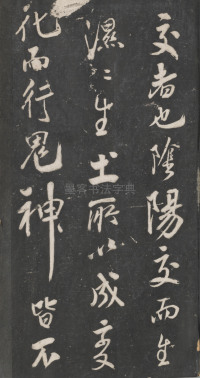 交者也陰陽交而生
濕濕生土所以成变
化而行鬼神皆不
墨客书法字典